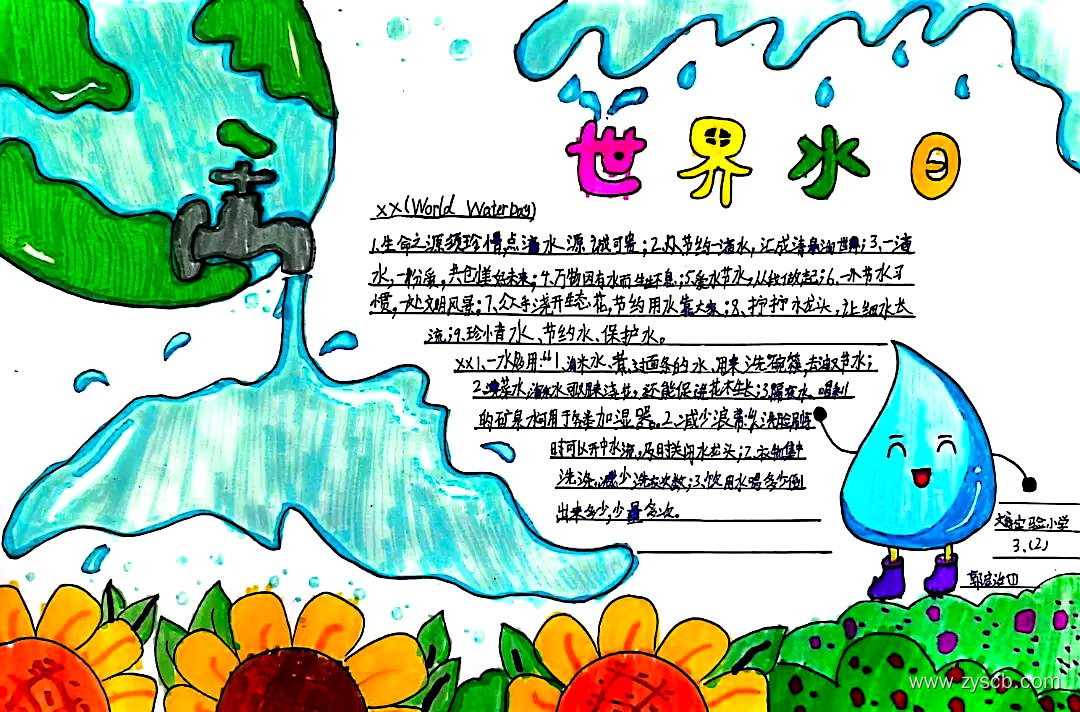 世界水日
xx(World WaterDay)
1.生命之源须珍惜,点滴水源诚可贵;2.从节约一滴水,汇成清泉润世界;3.一滴
水,一份爱,共创美好未来;4.万物因有水而生生不息;5.爱水节水,从我做起;6.一水节水习
惯,一处文明风景;7.众手浇开生态花,节约用水靠大家;8.拧拧水龙头,让细水长
流;9.珍惜水、节约水、保护水。
xx1.一水多用:1.淘米水、煮过面条的水,用来洗碗筷,去油又节水;
2.洗菜水,淘米水可以用来浇花,还能促进花木生长;3.隔夜水、喝剩
的矿泉水可用于各类加湿器。2.减少浪费:1.洗脸刷牙
时可以开中水流,及时关闭水龙头;2.衣物集中
洗涤,减少洗衣次数;3.饮用水喝多少倒
出来多少,少量多次。
实验小学
3.(2)
www.zyscb.com